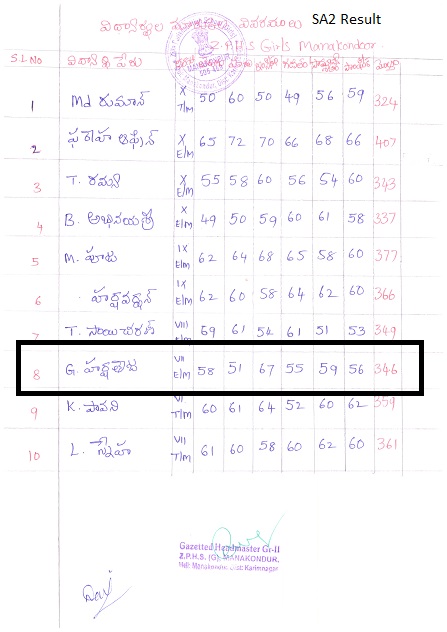 విద్యార్థుల వివరములు SA2 Result
Z.P.H.S Girls Manakondoor
SL.No విద్యార్థి పేరు
1 Md రుమాన్ X T/M 50 60 50 49 56 59 324
2 X E/M 65 72 70 66 68 66 407
3 T. రమ్య X E/M 55 58 60 56 54 60 343
4 B. అభినయశ్రీ X E/M 49 50 59 60 61 58 337
5 M. పూజ IX E/M 62 64 68 65 58 60 377
6 హర్షవర్ధన్ IX E/M 62 60 58 64 62 60 366
7 T. సాయిచరణ్ VIII 59 61 54 61 51 53 349
8 G. VII E/M 58 51 67 55 59 56 346
9 K. పావని VI T/M 60 61 64 52 60 62 359
10 L. స్నేహ VII T/M 61 60 58 60 62 60 361
Gazetted Headmaster Gr-II
Z.P.H.S. (G). MANAKONDUR,
Mdl: Manakondur Dist: Karimnagar